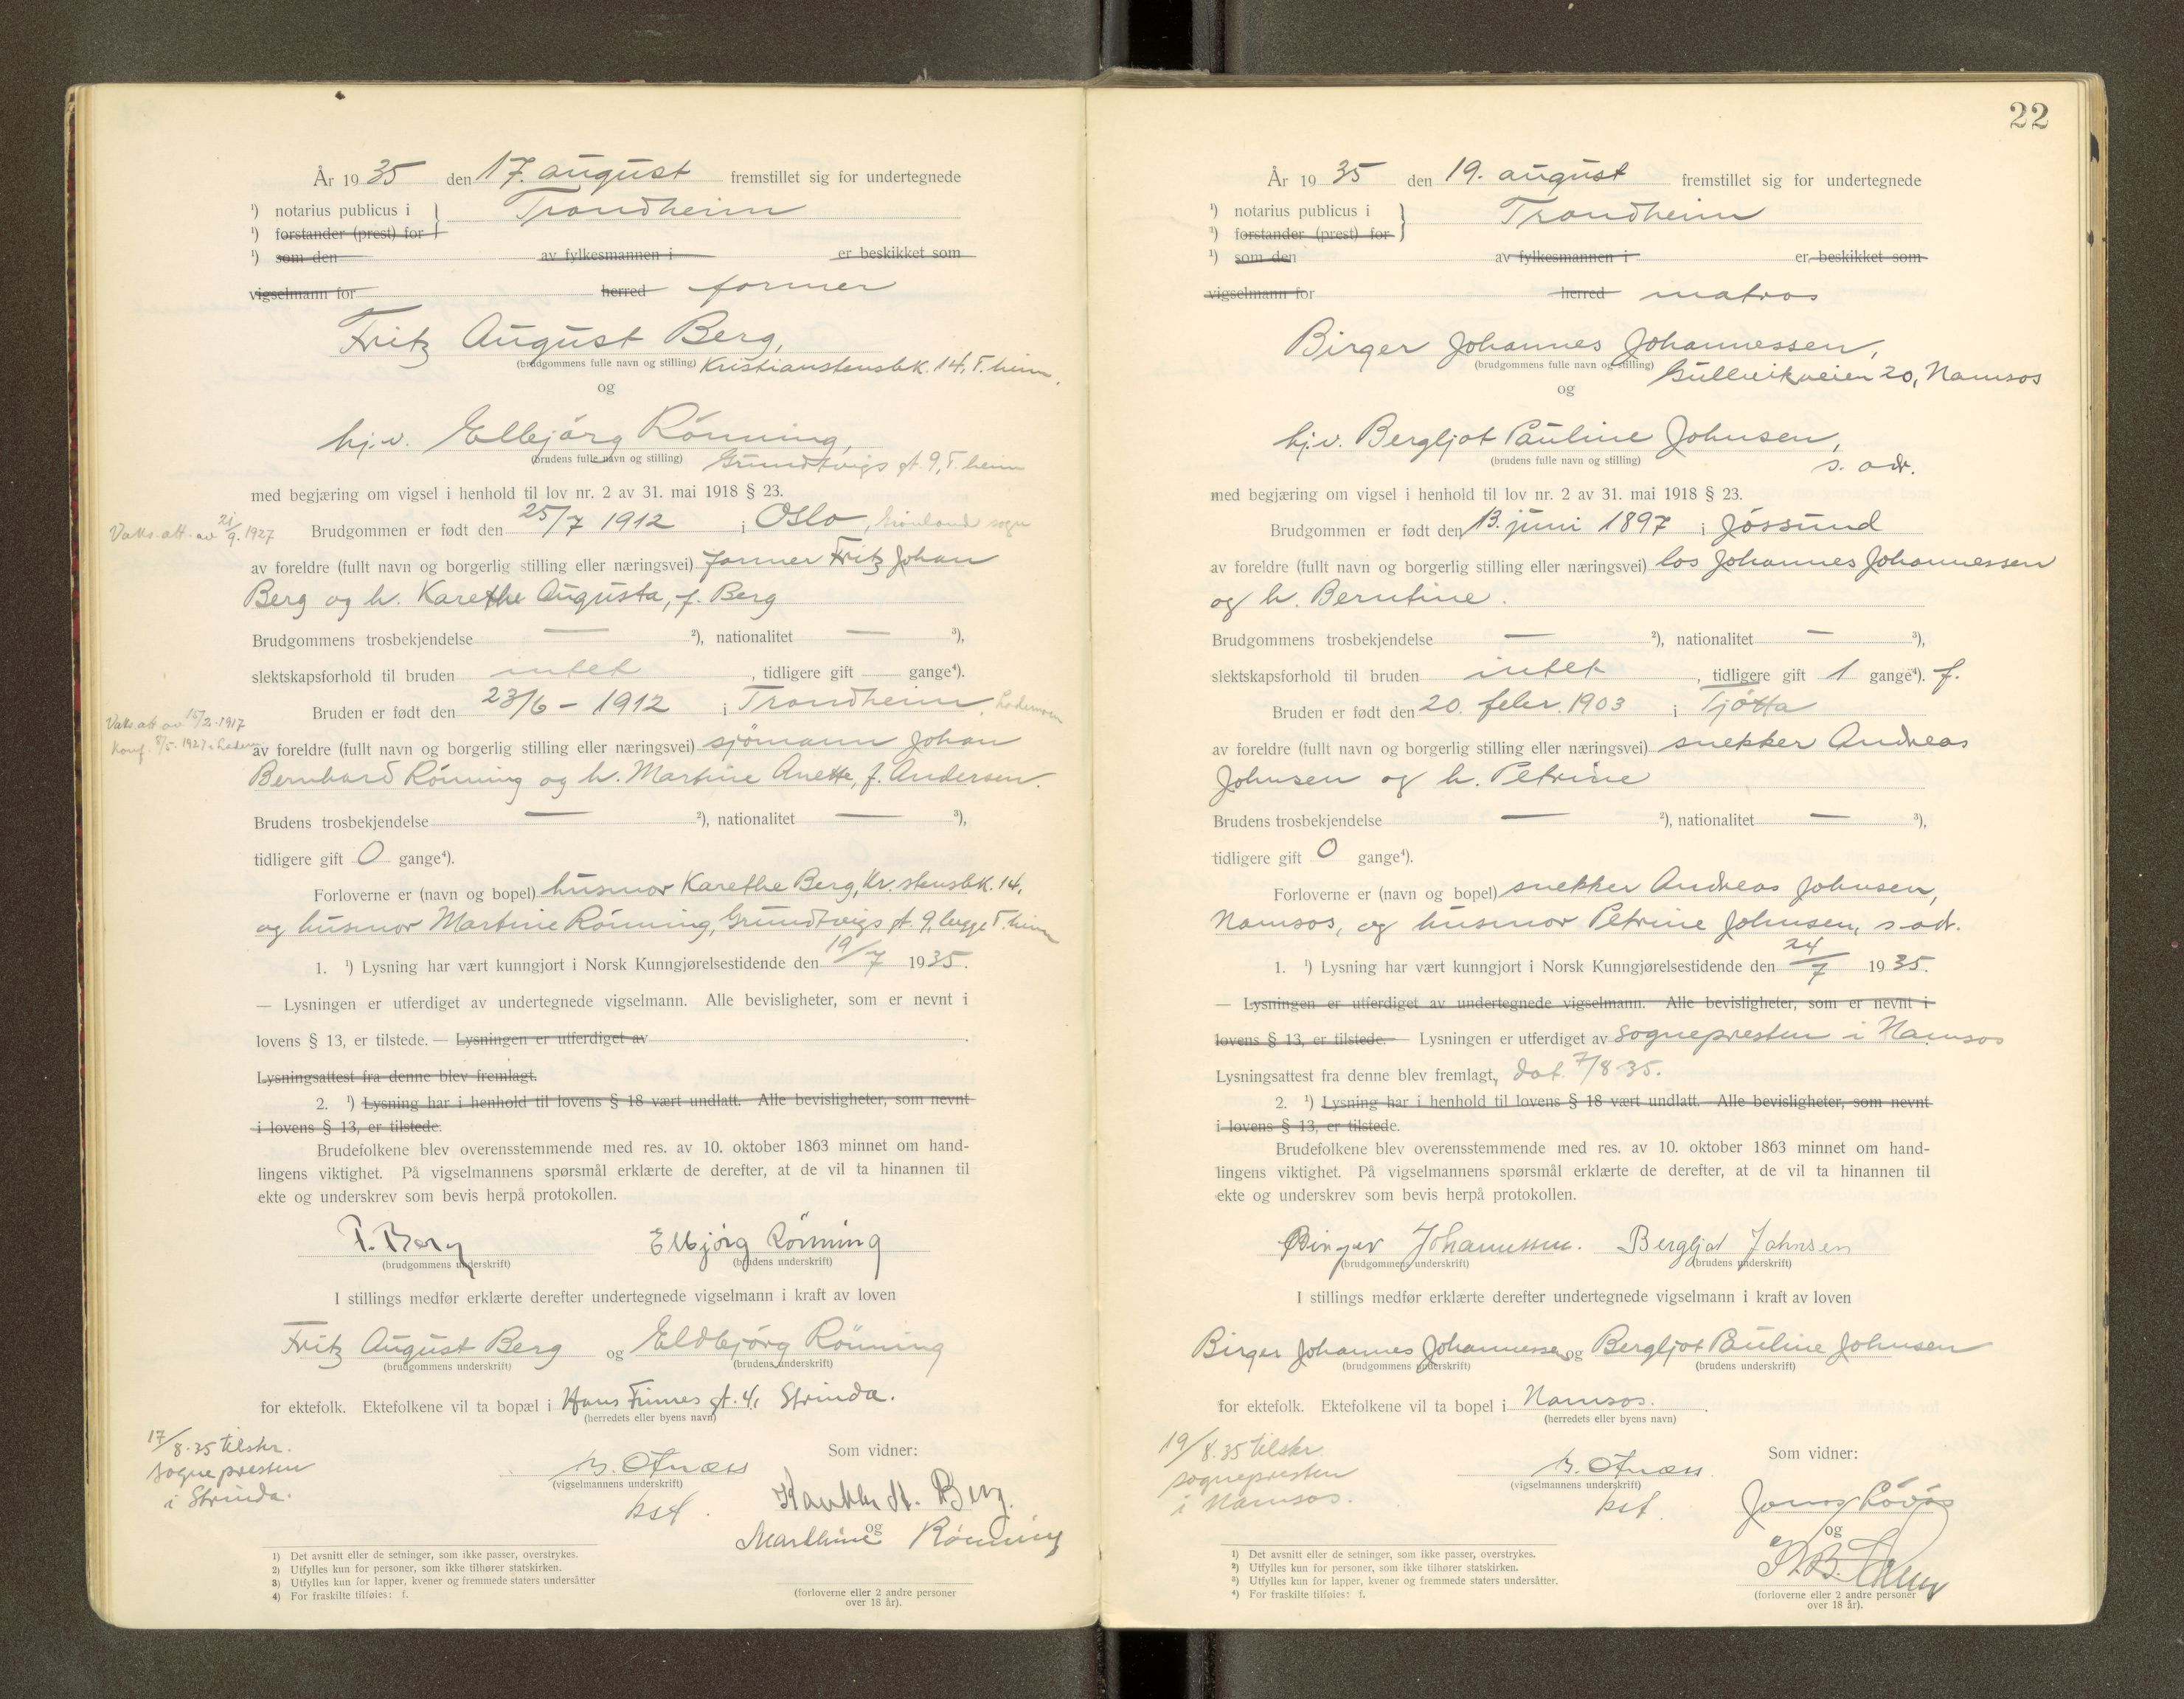 År 1935 den 17. august fremstillet sig for undertegnede
¹) notarius publicus i } Trondheim
¹) forstander (prest) for
¹) som den av fylkesmannen i er beskikket som
vigselmann for herred former
Fritz August Berg,
(brudgommens fulle navn og stilling) Kristianstensbk. 14, T.heim.
og
hj.v. Ellbjörg Rönning,
(brudens fulle navn og stilling) Grundtvigs gt. 9, T.heim
med begjæring om vigsel i henhold til lov nr. 2 av 31. mai 1918 § 23.
Vaks.att. av 21/9.1927 Brudgommen er født den 25/7 1912 i Oslo, Grønland sogn
av foreldre (fullt navn og borgerlig stilling eller næringsvei) former Fritz Johan
Berg og h. Karethe Augusta, f. Berg
Brudgommens trosbekjendelse — ²), nationalitet — ³),
slektskapsforhold til bruden intet, tidligere gift gange⁴).
Bruden er født den 23/6 - 1912 i Trondheim, Lademoen
Vaks.att av 15/2.1917
Konf. 8/5.1927 i Ladem
av foreldre (fullt navn og borgerlig stilling eller næringsvei) sjömann Johan
Bernhard Rönning og h. Martine Anette, f. Andersen.
Brudens trosbekjendelse — ²), nationalitet — ³),
tidligere gift 0 gange⁴).
Forloverne er (navn og bopel) husmor Karethe Berg, Kr.stensbk. 14,
og husmor Martine Rönning, Grundtvigs gt. 9, begge T.heim
1. ¹) Lysning har vært kunngjort i Norsk Kunngjørelsestidende den 19/7 1935.
— Lysningen er utferdiget av undertegnede vigselmann. Alle bevisligheter, som er nevnt i
lovens § 13, er tilstede. — Lysningen er utferdiget av .
Lysningsattest fra denne blev fremlagt.
2. ¹) Lysning har i henhold til lovens § 18 vært undlatt. Alle bevisligheter, som nevnt
i lovens § 13, er tilstede.
Brudefolkene blev overensstemmende med res. av 10. oktober 1863 minnet om hand-
lingens viktighet. På vigselmannens spørsmål erklærte de derefter, at de vil ta hinannen til
ekte og underskrev som bevis herpå protokollen.
F. Berg Elbjörg Rönning
(brudgommens underskrift) (brudens underskrift)
I stillings medfør erklærte derefter undertegnede vigselmann i kraft av loven
Fritz August Berg og Eldbjörg Rönning
(brudgommens underskrift) (brudens underskrift)
for ektefolk. Ektefolkene vil ta bopæl i Hans Finnes gt. 4, Strinda.
(herredets eller byens navn)
17/8.35 tilskr.
sognepresten
i Strinda.
Som vidner:
(vigselmannens underskrift)
kst.
Berg.
og
Marthine Rönning
1) Det avsnitt eller de setninger, som ikke passer, overstrykes.
2) Utfylles kun for personer, som ikke tilhører statskirken.
3) Utfylles kun for lapper, kvener og fremmede staters undersåtter
4) For fraskilte tilføies: f.
(forloverne eller 2 andre personer
over 18 år).
22
År 1935 den 19. august fremstillet sig for undertegnede
¹) notarius publicus i } Trondheim
¹) forstander (prest) for
¹) som den av fylkesmannen i er beskikket som
vigselmann for herred matros
Birger Johannes Johannessen,
(brudgommens fulle navn og stilling) Gullvikveien 20, Namsos
og
hj.v. Bergljot Pauline Johnsen,
(brudens fulle navn og stilling) s. adr.
med begjæring om vigsel i henhold til lov nr. 2 av 31. mai 1918 § 23.
Brudgommen er født den 13. juni 1897 i Jössund
av foreldre (fullt navn og borgerlig stilling eller næringsvei) los Johannes Johannessen
og h. Berntine.
Brudgommens trosbekjendelse — ²), nationalitet — ³),
slektskapsforhold til bruden intet, tidligere gift 1 gange⁴). f.
Bruden er født den 20. febr. 1903 i Tjötta
av foreldre (fullt navn og borgerlig stilling eller næringsvei) snekker Andreas
Johnsen og h. Petrine
Brudens trosbekjendelse — ²), nationalitet — ³),
tidligere gift 0 gange⁴).
Forloverne er (navn og bopel) snekker Andreas Johnsen,
Namsos, og husmor Petrine Johnsen, s. adr.
1. ¹) Lysning har vært kunngjort i Norsk Kunngjørelsestidende den 24/7 1935.
— Lysningen er utferdiget av undertegnede vigselmann. Alle bevisligheter, som er nevnt i
lovens § 13, er tilstede. — Lysningen er utferdiget av sognepresten i Namsos
Lysningsattest fra denne blev fremlagt, dat. 7/8-35.
2. ¹) Lysning har i henhold til lovens § 18 vært undlatt. Alle bevisligheter, som nevnt
i lovens § 13, er tilstede.
Brudefolkene blev overensstemmende med res. av 10. oktober 1863 minnet om hand-
lingens viktighet. På vigselmannens spørsmål erklærte de derefter, at de vil ta hinannen til
ekte og underskrev som bevis herpå protokollen.
Birger Johannessen. Bergljot Johnsen
(brudgommens underskrift) (brudens underskrift)
I stillings medfør erklærte derefter undertegnede vigselmann i kraft av loven
Birger Johannes Johannessen og Bergljot Pauline Johnsen
(brudgommens underskrift) (brudens underskrift)
for ektefolk. Ektefolkene vil ta bopel i Namsos.
(herredets eller byens navn)
19/8.35 tilskr.
sognepresten
i Namsos.
Som vidner:
(vigselmannens underskrift)
kst.
og
1) Det avsnitt eller de setninger, som ikke passer, overstrykes.
²) Utfylles kun for personer, som ikke tilhører statskirken.
³) Utfylles kun for lapper, kvener og fremmede staters undersåtter.
⁴) For fraskilte tilføies: f.
(forloverne eller 2 andre personer
over 18 år).